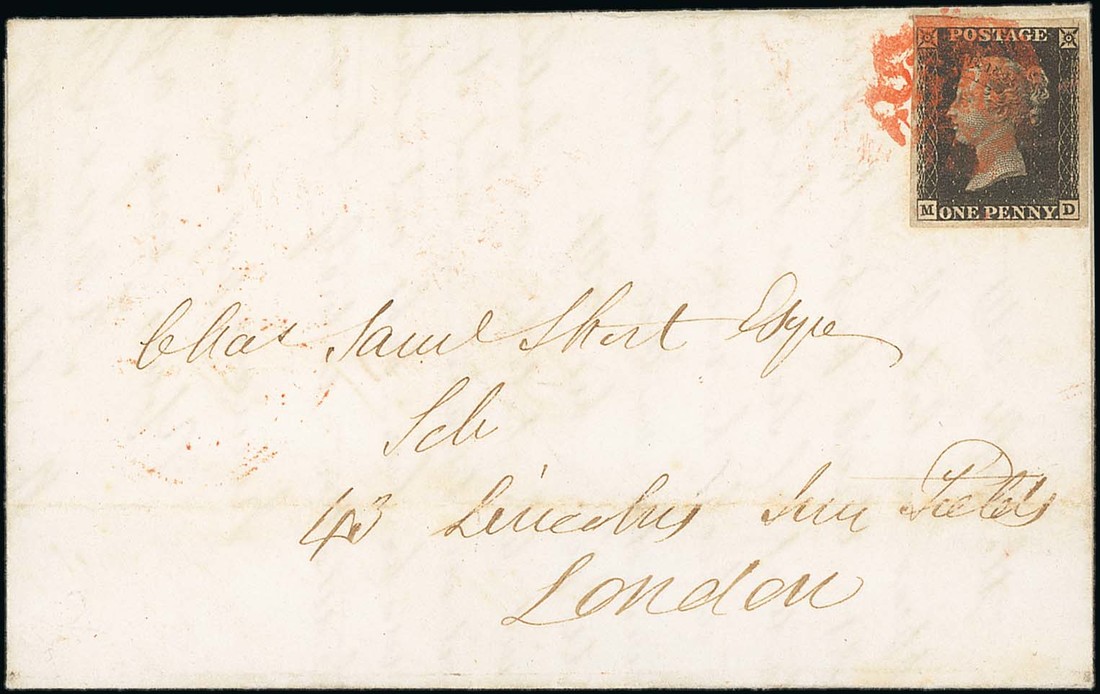 POSTAGE
M ONE PENNY. D
Chas Saml Short Esqre
Solr
43 Lincolns Inn Fields
London